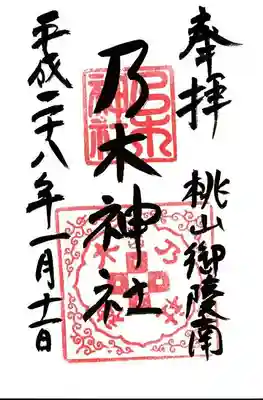 奉拝
桃山御陵南
乃木神社
平成二十八年一月十一日